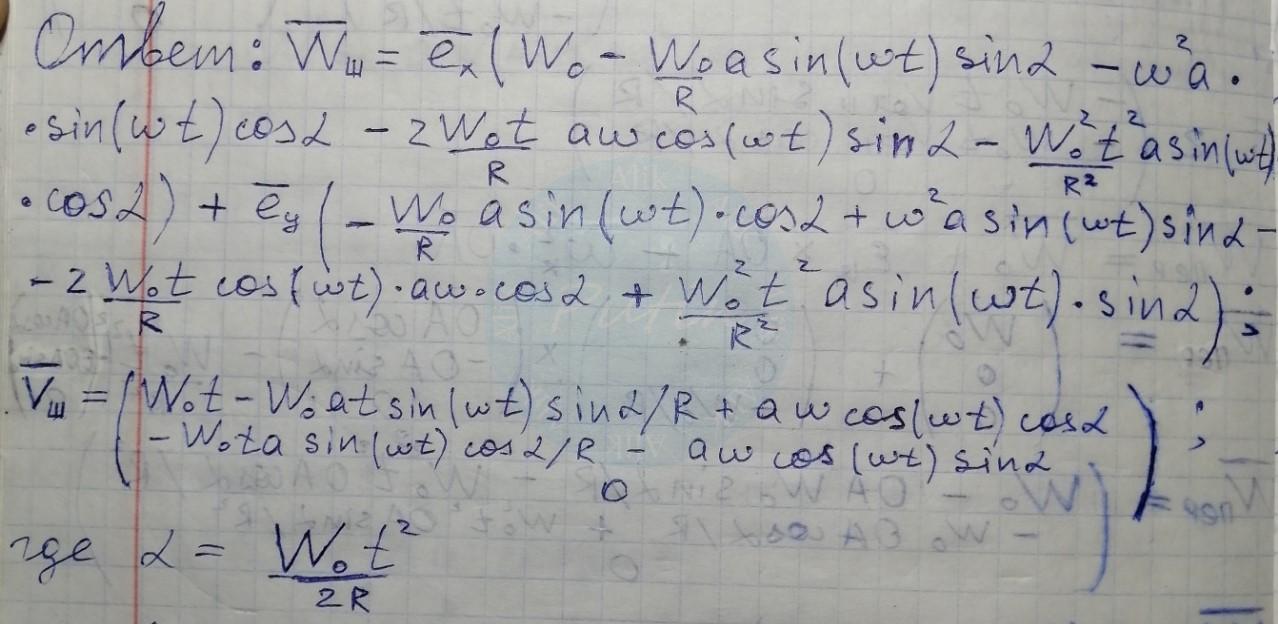 Ответ: W̅ш = e̅x (W₀ - W₀/R a sin(ωt) sin α - ω² a ·
· sin(ωt) cos α - 2 W₀t/R aω cos(ωt) sin α - W₀²t²/R² a sin(ωt)
· cos α) + e̅y (- W₀/R a sin(ωt) · cos α + ω² a sin(ωt) sin α -
- 2 W₀t/R cos(ωt) · aω · cos α + W₀²t²/R² a sin(ωt) · sin α);
V̅ш = (W₀t - W₀at sin(ωt) sin α/R + aω cos(ωt) cos α
- W₀ta sin(ωt) cos α/R - aω cos(ωt) sin α
0) ;
где α = W₀t²/2R